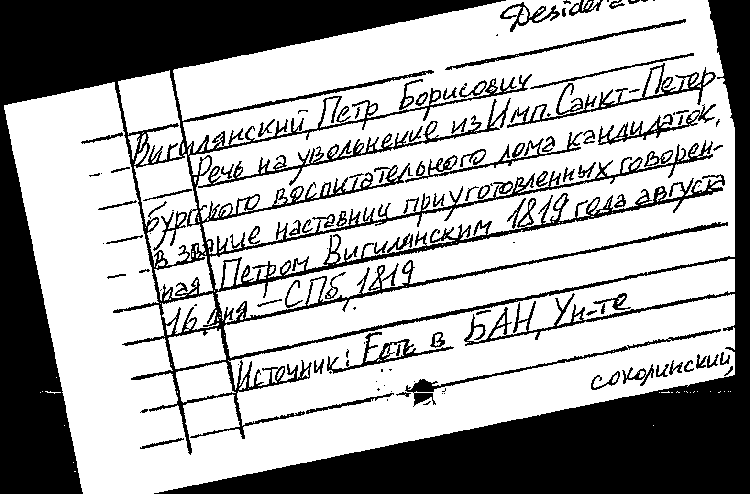 Вигилянский, Петр Борисович
Речь на увольнение из Имп. Санкт-Петер-
бургского воспитательного дома кандидаток,
в звание наставниц приуготовленных, говорен-
ная Петром Вигилянским 1819 года августа
16 дня. - СПб, 1819
Источник: Есть в БАН, Ун-те
соколинский,